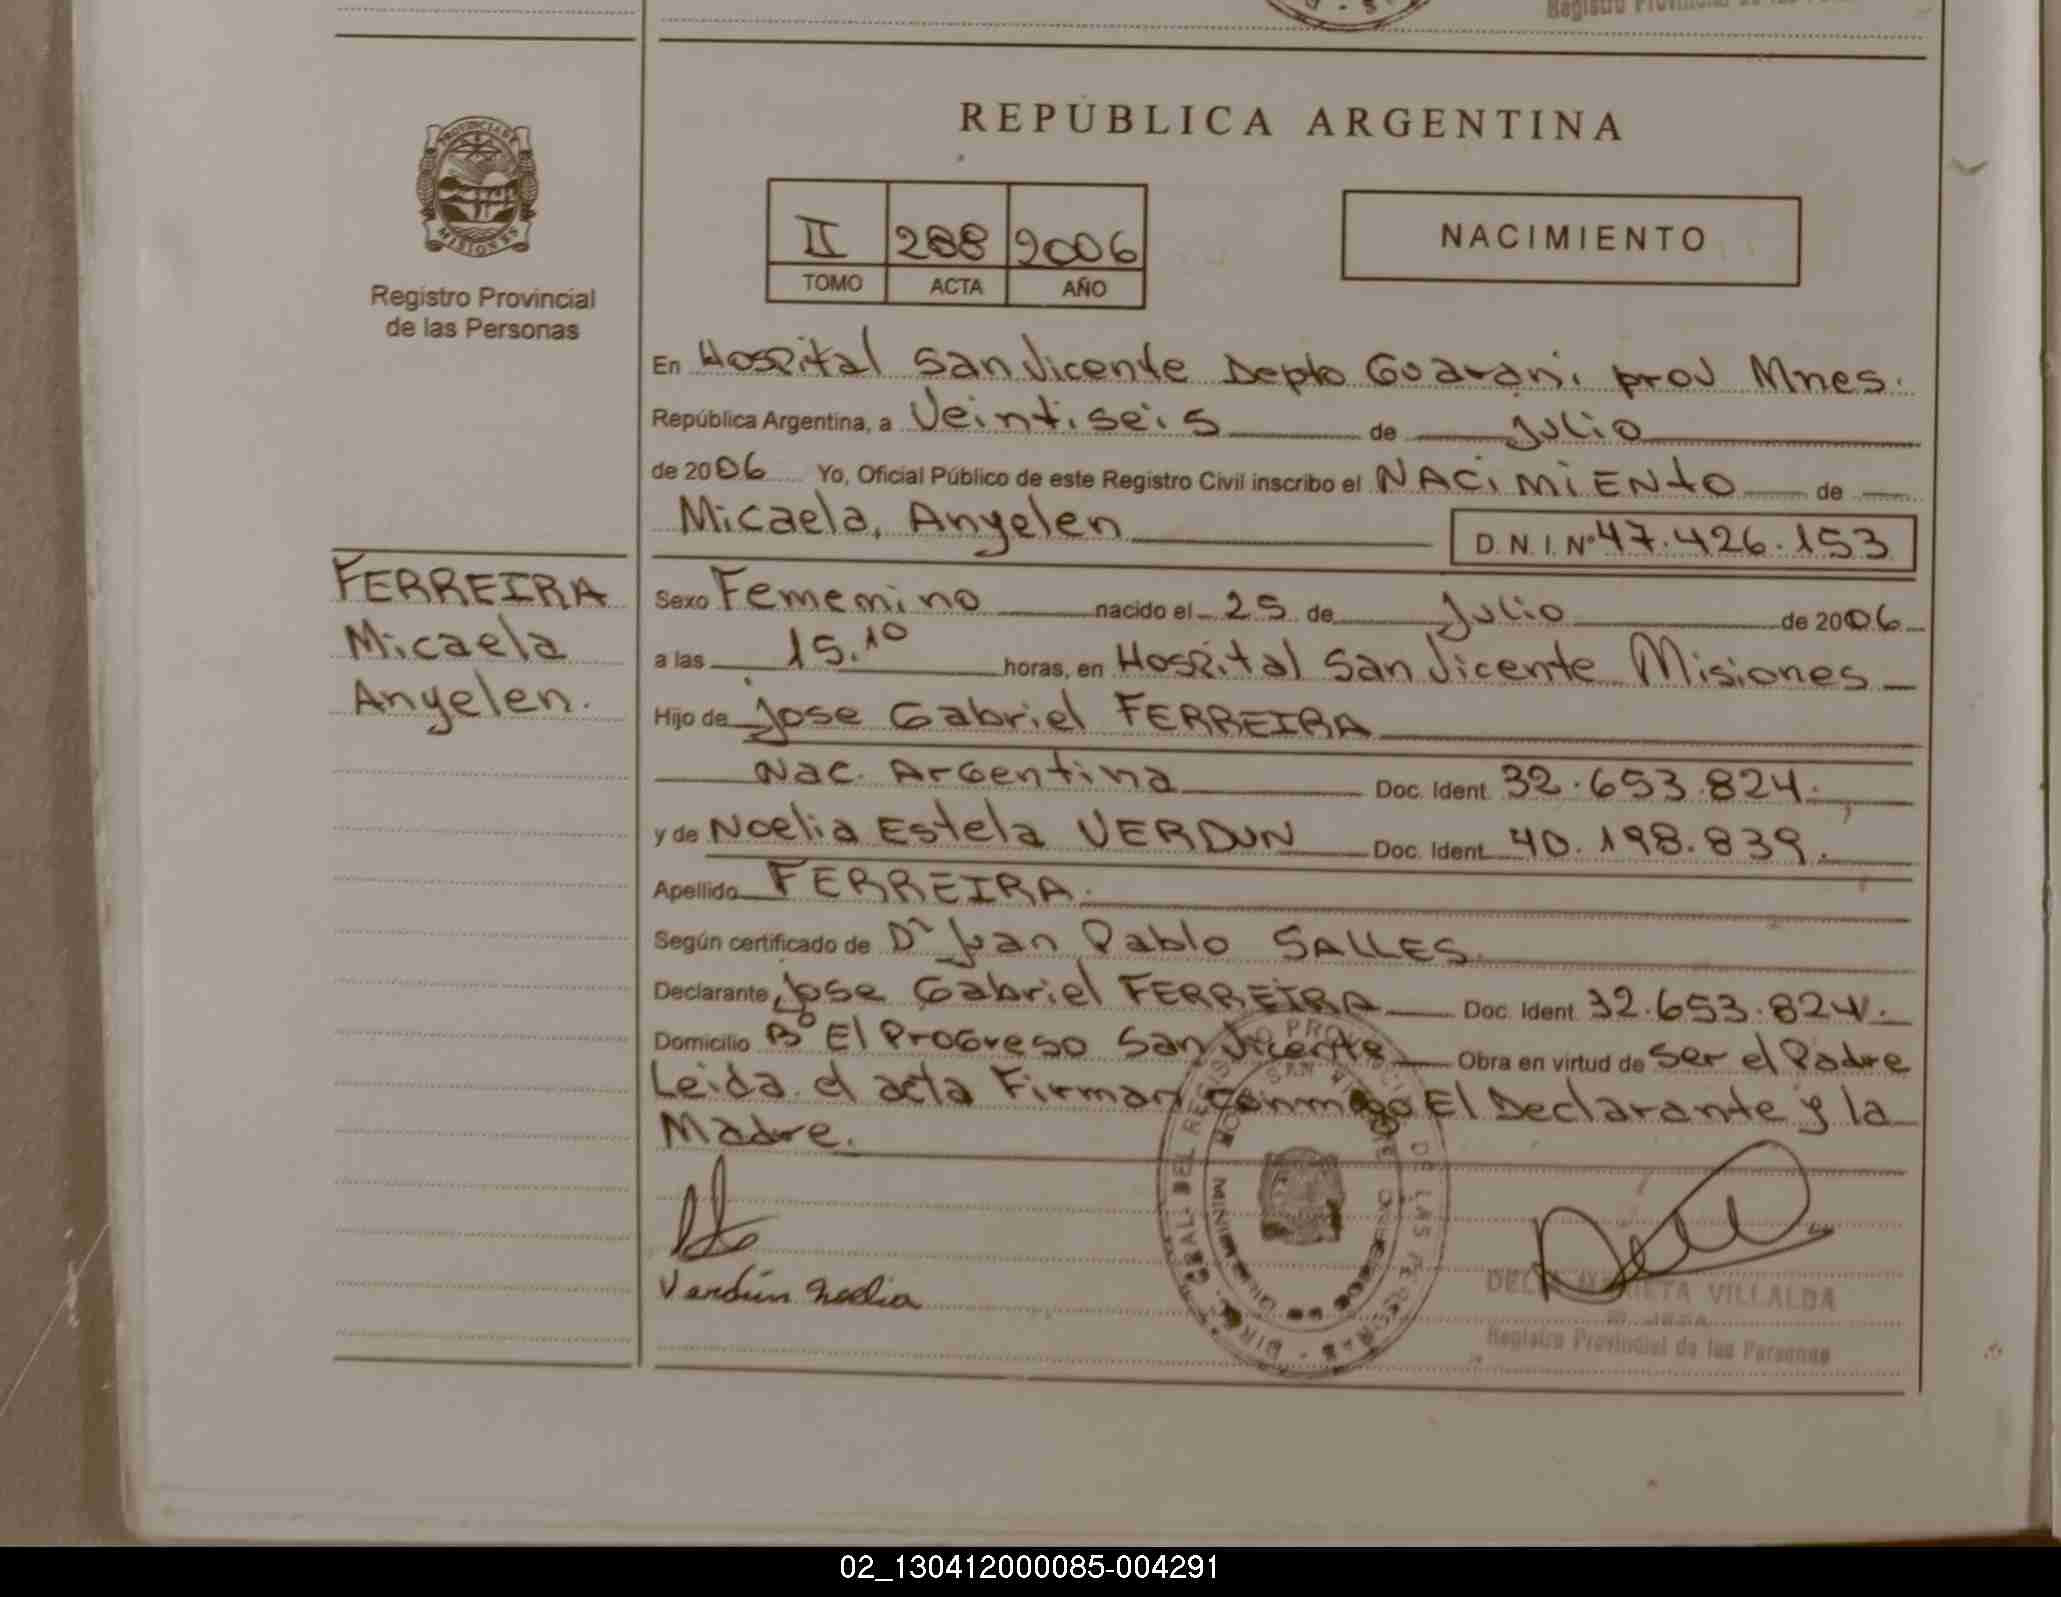 Registro Provincial de las
REPÚBLICA ARGENTINA
PROVINCIA DE
MISIONES
Registro Provincial
de las Personas
II 288 2006
TOMO ACTA AÑO
NACIMIENTO
En Hospital San Vicente Depto Guarani prov Mnes.
República Argentina, a Veintiseis de Julio
de 2006 Yo, Oficial Público de este Registro Civil inscribo el NACIMIENTO de
Micaela, Anyelen D.N.I. Nº 47.426.153
FERREIRA
Micaela
Anyelen.
Sexo Fememino nacido el 25 de Julio de 2006
a las 15.10 horas, en Hospital San Vicente Misiones
Hijo de Jose Gabriel FERREIRA
Nac. Argentina Doc. Ident. 32.653.824.
y de Noelia Estela VERDUN Doc. Ident. 40.198.839.
Apellido FERREIRA.
Según certificado de Dr Juan Pablo SALLES
Declarante Jose Gabriel FERREIRA Doc. Ident. 32.653.824.
Domicilio Bº El Progreso San Vicente Obra en virtud de Ser el Padre
Leida el acta Firman conmigo El Declarante y la
Madre.
Verdún Noelia
VILLALBA
Registro Provincial de las Personas
02_130412000085-004291